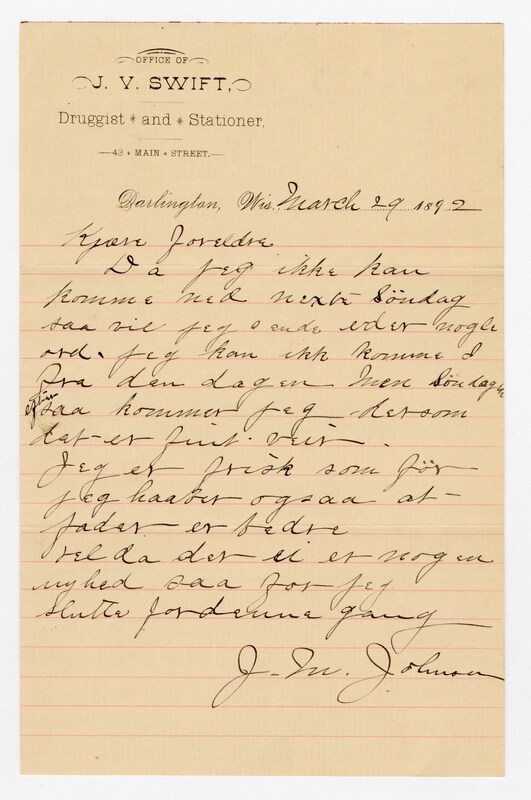 OFFICE OF
J. V. SWIFT,
Druggist * and * Stationer,
43 * MAIN * STREET.
Darlington, Wis. March 29 1892
Kjære Foreldre
Da jeg ikke kan
komme ned nexte Söndag
saa vil jeg sende eder nogle
ord. jeg kan ikk komme I
fra den dagen men Söndagen
efter saa kommer jeg dersom
det er fint veir.
Jeg er frisk som för
jeg haaber ogsaa at
fader er bedre
vel da der ei er nogen
nyhed saa faar jeg
slutte for denne gang
J. M. Johnson